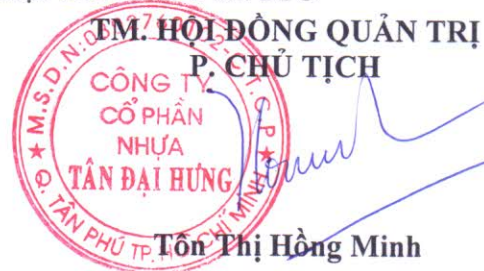 TM. HỘI ĐỒNG QUẢN TRỊ
P. CHỦ TỊCH
CÔNG TY
CỔ PHẦN
NHỰA
TÂN ĐẠI HƯNG
Q. TÂN PHÚ TP. HỒ CHÍ MINH
Tôn Thị Hồng Minh